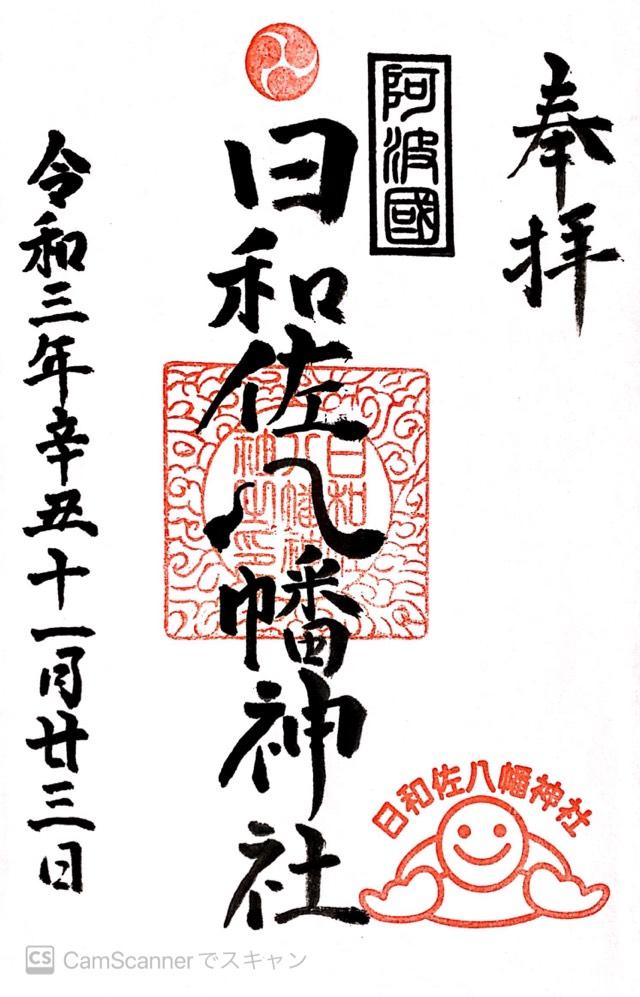 奉拝
阿波國
日和佐八幡神社
令和三年辛丑十一月廿三日
日和佐八幡神社
CS CamScannerでスキャン